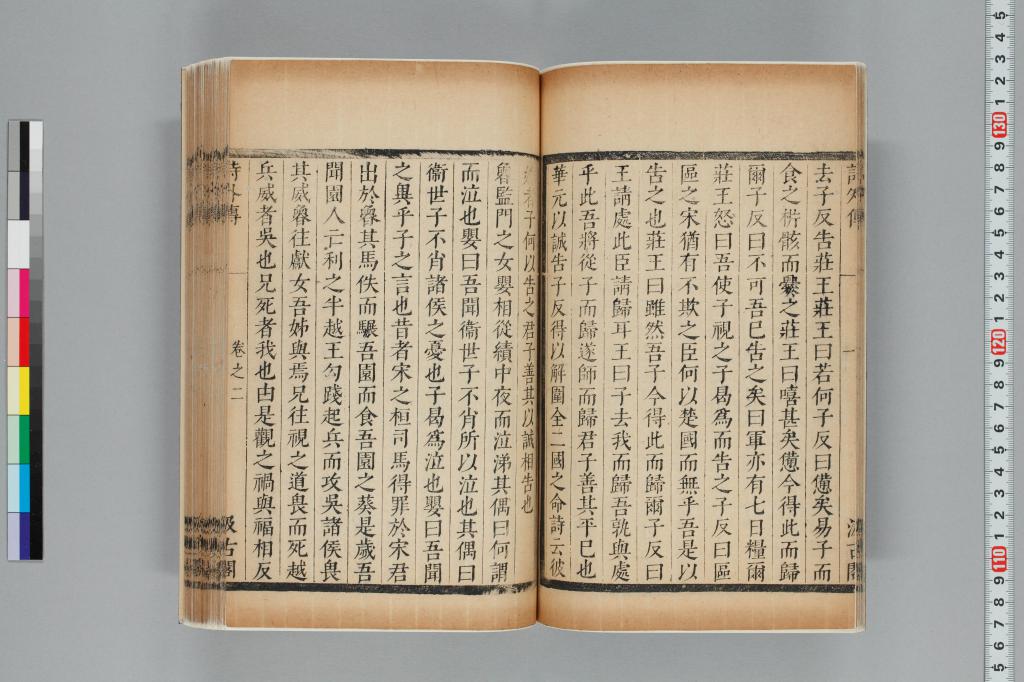 去子反告莊王莊王曰若何子反曰憊矣易子而
食之析骸而爨之莊王曰嘻甚矣憊今得此而歸
爾子反曰不可吾已告之矣曰軍亦有七日糧爾
莊王怒曰吾使子視之子曷爲而告之子反曰區
區之宋猶有不欺之臣何以楚國而無乎吾是以
告之也莊王曰雖然吾子今得此而歸爾子反曰
王請處此臣請歸耳王曰子去我而歸吾孰與處
乎此吾將從子而歸遂師而歸君子善其平已也
華元以誠告子反得以解圍全二國之命詩云彼
者子何以告之君子善其以誠相告也
魯監門之女嬰相從績中夜而泣涕其偶曰何謂
而泣也嬰曰吾聞衞世子不肖所以泣也其偶曰
衞世子不肖諸侯之憂也子曷爲泣也嬰曰吾聞
之異乎子之言也昔者宋之桓司馬得罪於宋君
出於魯其馬佚而驟吾園而食吾園之葵是歲吾
聞園人亡利之半越王勾踐起兵而攻吳諸侯畏
其威魯往獻女吾姊與焉兄往視之道畏而死越
兵威者吳也兄死者我也由是觀之禍與福相反
詩外傳
卷之二
汲古閣